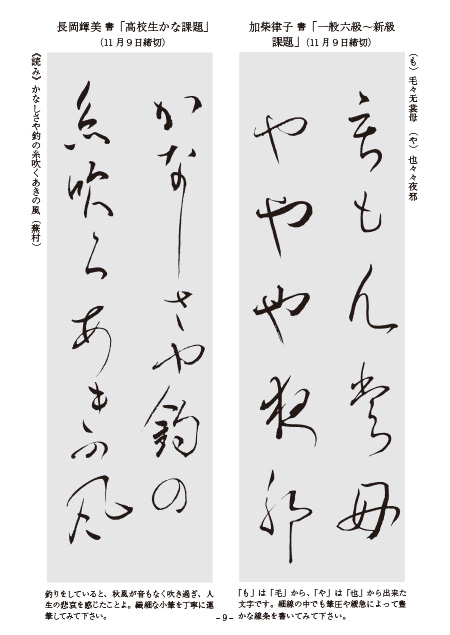 加柴律子 書「一般六級～新級
課題」(11月9日締切)
(も) 毛々无裳母 (や) 也々々夜邪
もん裳母
ややや夜邪
「も」は「毛」から、「や」は「也」から出来た
文字です。細線の中でも筆圧や緩急によって豊
かな線条を書いてみて下さい。
長岡輝美 書「高校生かな課題」
(11月9日締切)
かなしさや釣の
糸吹くあきの風
《読み》かなしさや釣の糸吹くあきの風 (蕪村)
釣りをしていると、秋風が音もなく吹き過ぎ、人
生の悲哀を感じたことよ。繊細な小筆を丁寧に運
筆してみて下さい。
- 9 -